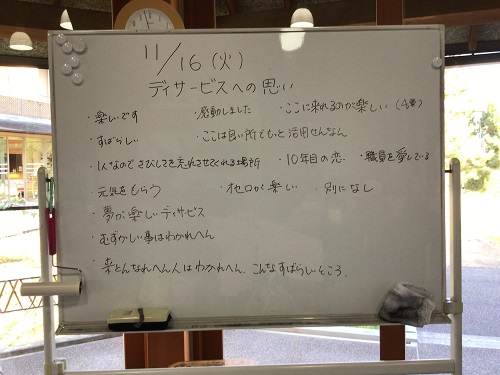 11/16(火)
デイサービスへの思い
・楽しいです ・感動しました ・ここに来れるのが楽しい
・すばらしい ・ここは良い所でもっと活用せんなん
・1人なのでさびしさを忘れさせてくれる場所 ・10年目の恋 ・職員を愛している
・元気をもらう ・オセロが楽しい ・別になし
・夢が楽しいデイサービス
・むずかしい事はわかれへん
・来とんなれへん人はわかれへん、こんなすばらしいところ.